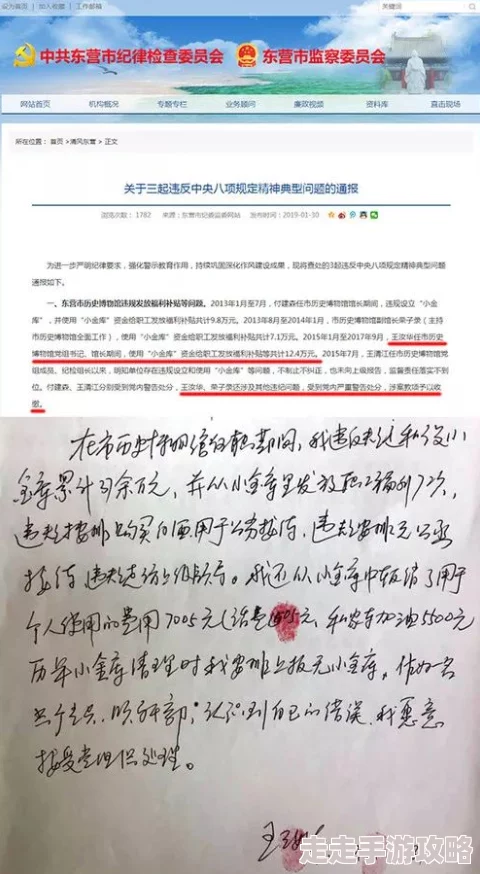 设为首页 | 加入收藏 | 工作邮箱
关键词
中共东营市纪律检查委员会 东营市监察委员会
网站首页 机构概况 专题专栏 业务顾问 廉政视频 资料库 直击现场
所在位置：首页 > 清风东营 > 正文
关于三起违反中央八项规定精神典型问题的通报
浏览次数： 1782 来源：东营市纪委监委网站 发布时间：2019-01-30
为进一步严明纪律要求，强化警示教育作用，持续巩固深化作风建设成果，现将查处的3起违反中央八项规定精神典型问题
通报如下。
一、东营市历史博物馆违规发放福利补贴等问题。2013年1月至7月，付建森任市历史博物馆馆长期间，违规设立“小金
库”，并使用“小金库”资金给职工发放福利补贴共计9.8万元。2013年8月至2014年1月，市历史博物馆副馆长荣子录（主持
市历史博物馆全面工作），使用“小金库”资金给职工发放福利补贴共计7.1万元。2015年1月至2017年9月，王汝华任市历史
博物馆党组书记、馆长期间，使用“小金库”资金给职工发放福利补贴等共计12.4万元。2015年7月，王清江任市历史博物馆党
组成员、纪检组长以来，明知单位存在违规设立和使用“小金库”等问题，不制止不纠正，也未向上级报告，监督责任落实不到
位。付建森、王清江分别受到党内警告处分，王汝华、荣子录还涉及其他违纪问题，受到党内严重警告处分，涉案款项予以收
缴。
在市历史博物馆任职期间，我违反规定私设小
金库累计 余万元，并从小金库里发放职工福利72次，
违规安排购买 酒用于公务接待，违规安排无公函
接待 违规 。我还从小金库中报销了用
于个人使用的费用7005元（话费1505元，私家车加油5500元
历年小金库清理时我安排上报无小金库，作为一名
党员，领导干部，认识到自己的错误，我愿意
接受党组织处理。
王汝华
走走手游攻略